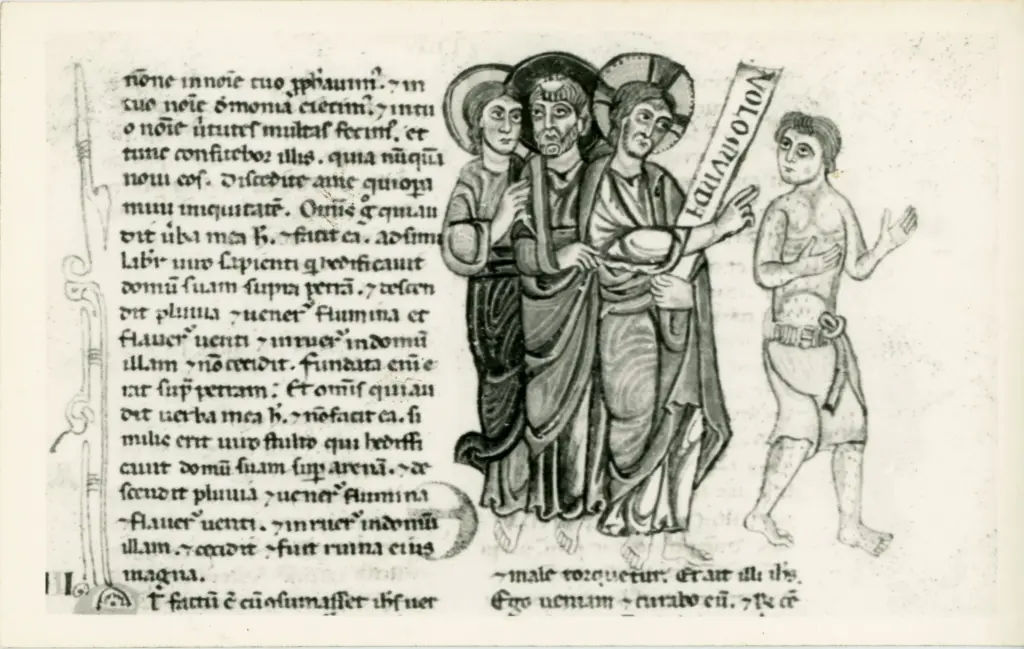 n̄one in noīe tuo ꝓph̄auim᷒. ⁊ in
tuo noīe dēmonia eiecim᷒. ⁊ in tu
o noīe uirtutes multas fecim᷒. et
tunc confitebor illis. quia nūquā
noui eos. Discedite a me qui opa
mini iniquitatē. Om̄is g̊ qui au
dit ūba mea h̄. ⁊ facit ea. adsimi
labit᷒ uiro sapienti q̇ hedificauit
domū suam supra petrā. ⁊ descen
dit pluuia ⁊ uener᷒ flumina et
flauer᷒ uenti ⁊ inruer᷒ in domū
illam ⁊ nō cecidit. fundata enī e
rat sup̄ petram. Et om̄is qui au
dit uerba mea h̄. ⁊ nō facit ea. si
milis erit uiro stulto qui hedifi
cauit domū suam sup̄ arenā. ⁊ de
scendit pluuia ⁊ uener᷒ flumina
⁊ flauer᷒ uenti. ⁊ inruer᷒ in domū
illam. ⁊ cecidit ⁊ fuit ruina eius
magna.
Et factū ē cū ↄsumasset ih̄s uer
VOLO MVNDA
⁊ male torquetur. Et ait illi ih̄s.
Ego ueniam ⁊ curabo eū. ⁊ Re